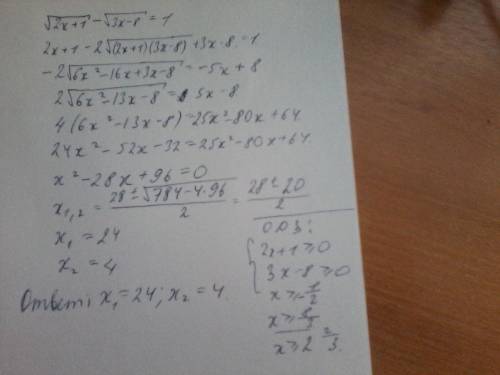 √(2x+1) - √(3x-8) = 1
2x+1 - 2√((2x+1)(3x-8)) + 3x-8 = 1
-2√(6x²-16x+3x-8) = -5x+8
2√(6x²-13x-8) = 5x-8
4(6x²-13x-8) = 25x²-80x+64
24x²-52x-32 = 25x²-80x+64.
x²-28x+96=0
x₁,₂ = (28±√(784-4·96))/2 = (28±20)/2
x₁ = 24
x₂ = 4
Ответ: x₁=24; x₂=4.
ОДЗ:
{2x+1≥0
3x-8≥0
x≥-1/2
x≥8/3
x≥2 2/3.